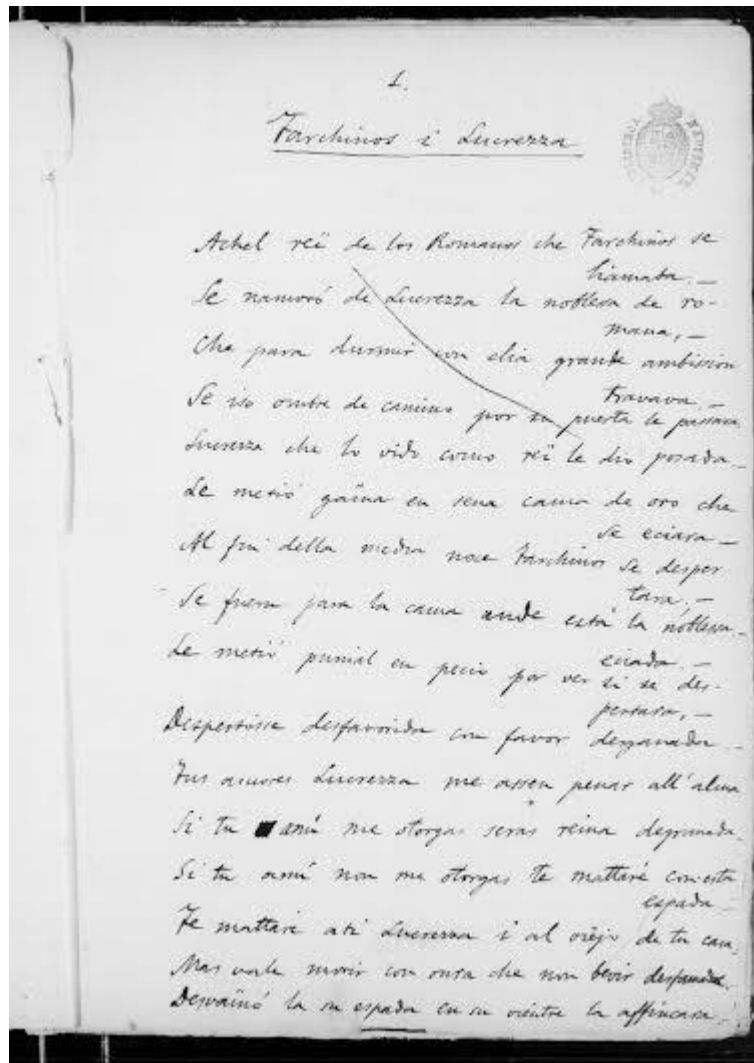 1.
Tarchinos i Lucrezza
BIBLIOTECA NACIONAL
Achel reï de los Romanos che Tarchinos se
liamaba. —
Se namoró de Lucrezza la noblesa de ro-
mana, —
Che para durmir con elia grande ambission
travava. —
Se iso ombre de camino por su puerta le passara
Lucrezza che lo vido como reï le dio posada —
Le metió gaïna en sena cama de oro che
se eciara —
Al fin della media noce Tarchinos se desper
tara. —
Se fuera para la cama ande está la noblesa —
eciada. —
Le metió punial en pecio por ver si se des-
pertara, —
Despertósse desfavorida con favor desganada —
Tus amores Lucrezza me assen penar all'alma
Si tu amí me otorgas seras reina degranada.
Si tu amí non me otorgas te mattaré con esta
espada —
Te mattaré ati Lucrezza i al de tu casa.
Mas vale morir con onra che non bevir desfamada.
Desvaïnó la su espada en su vientre la affincara.